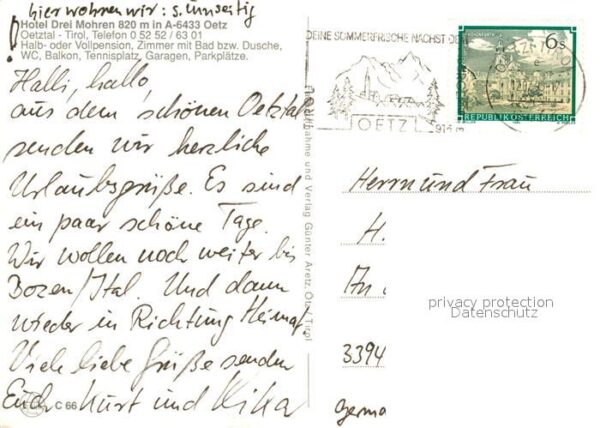 hier wohnen wir: s. umseitig
Hotel Drei Mohren 820 m in A-6433 Oetz
Oetztal - Tirol, Telefon 0 52 52 / 63 01
Halb- oder Vollpension, Zimmer mit Bad bzw. Dusche,
WC, Balkon, Tennisplatz, Garagen, Parkplätze.
Halli, hallo,
aus dem schönen Oetztal
senden wir herzliche
Urlaubsgrüße. Es sind
ein paar schöne Tage.
Wir wollen noch weiter bis
Bozen/Ital. Und dann
wieder in Richtung Heimat.
Viele liebe Grüße senden
Euch Kurt und Kika
C 66
Aufnahme und Verlag Günter Aretz, Ötz/Tirol
DEINE SOMMERFRISCHE NÄCHST DEM
OETZ
6 S
REPUBLIK ÖSTERREICH
Herrn und Frau
H.
An.
privacy protection
Datenschutz
3394
Germa